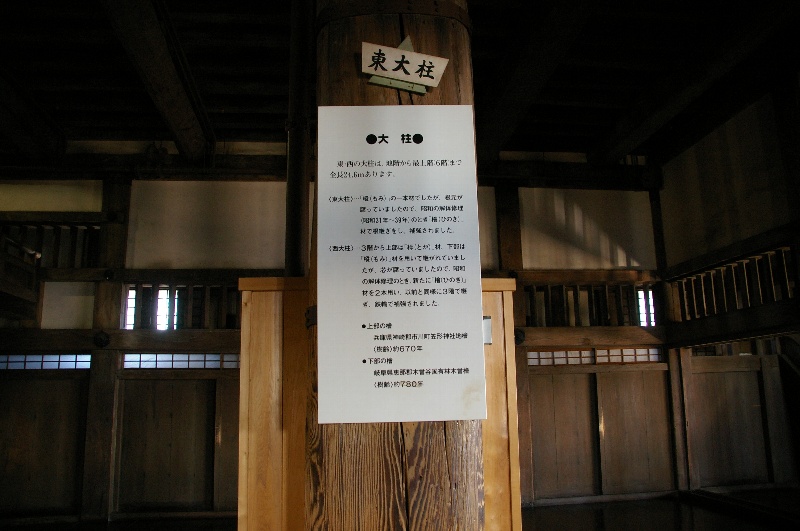 東大柱
●大　柱●
東・西の大柱は、地階から最上階（6階）まで
全長24.6mあります。
〈東大柱〉…「樅（もみ）」の一本材でしたが、根元が
腐っていましたので、昭和の解体修理
（昭和31年〜39年）のとき「檜（ひのき）」
材で根継ぎをし、補強されました。
〈西大柱〉…3階から上部は「栂（とが）」材、下部は
「樅（もみ）」材を用いて継がれていまし
たが、芯が腐っていましたので、昭和
の解体修理のとき、新たに「檜（ひのき）」
材を2本用い、以前と同様に3階で継
ぎ、鉄輪で補強されました。
●上部の檜
兵庫県神崎郡市川町笠形神社地檜
（樹齢）約670年
●下部の檜
岐阜県恵那郡木曽谷国有林木曽檜
（樹齢）約780年